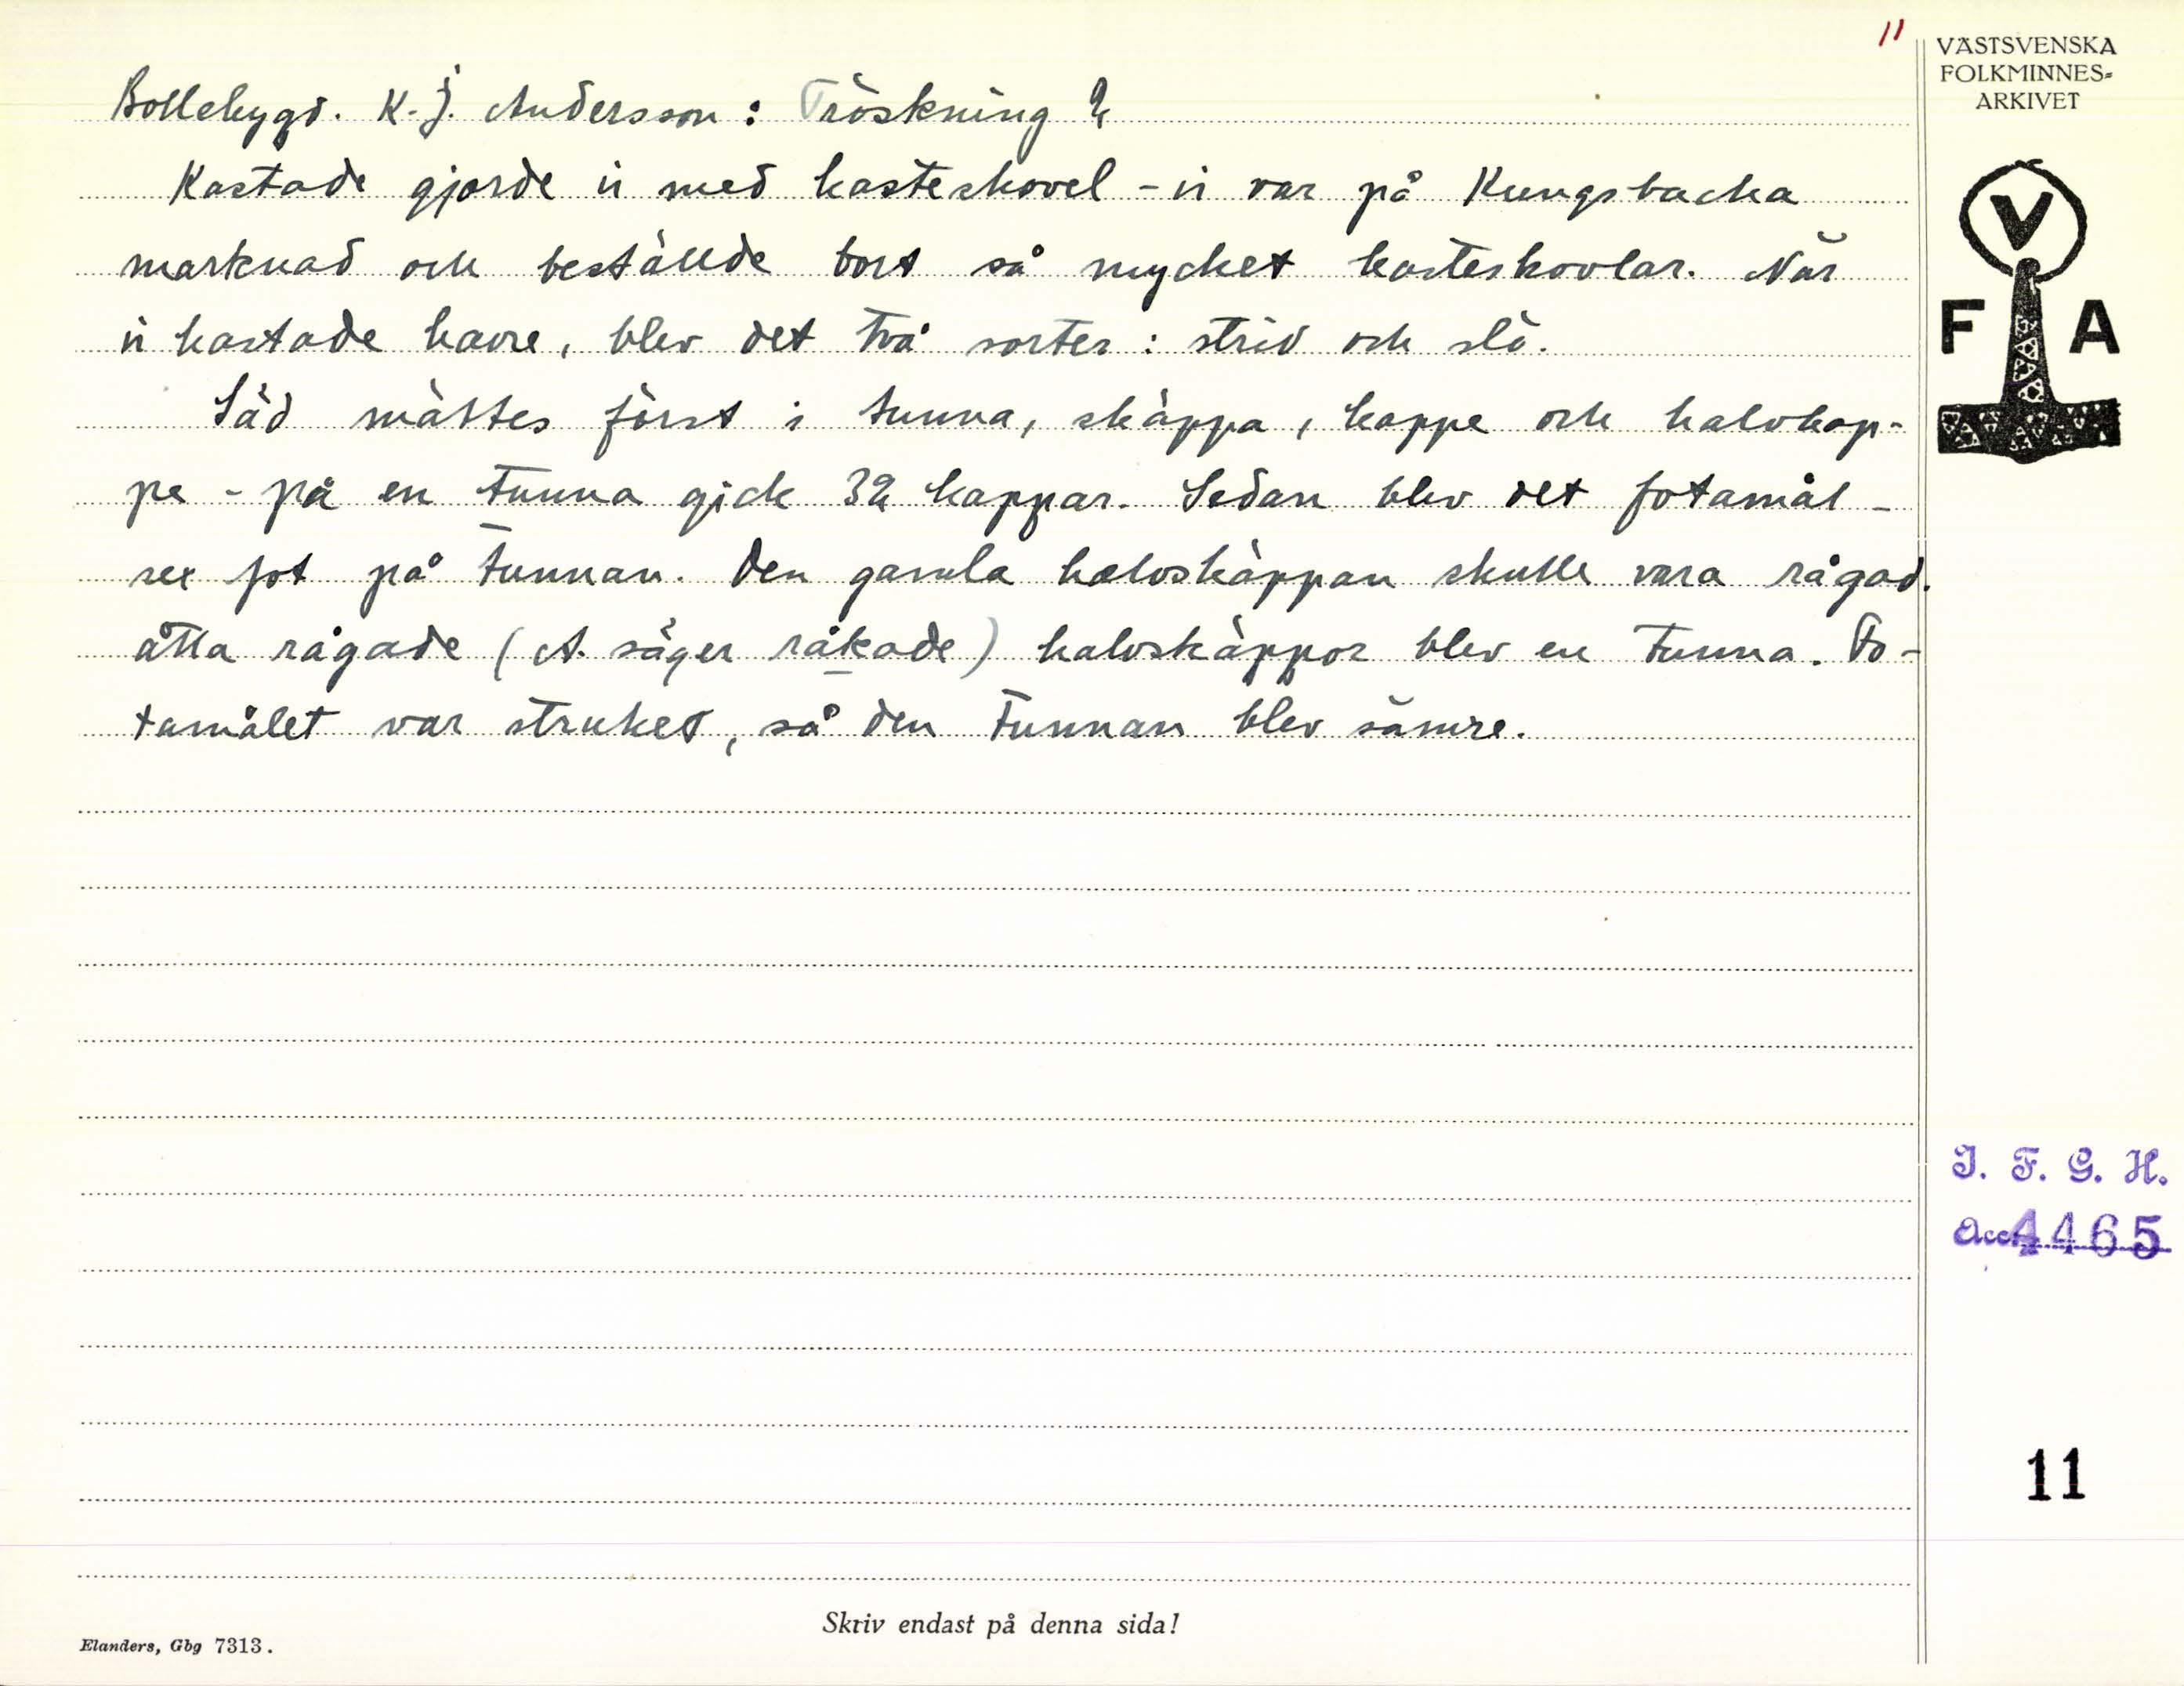 11
VÄSTSVENSKA
FOLKMINNES-
ARKIVET
Bollebygd. K.J. Andersson: Tröskning 2
Kastade gjorde vi med kasteskovel - vi var på Kungsbacka
marknad och beställde bort så mycket kasteskovlar. När
vi kastade havre, blev det två sorter: strid och slö.
Säd mättes först i tunna, skäppa, kappe och halvkap-
pe - på en tunna gick 32 kappar. Sedan blev det fotamål -
sex fot på tunnan. Den gamla halvskäppan skulle vara rågad.
åtta rågade (A. säger råkade) halvskäppor blev en tunna. Fo-
tamålet var struket, så den tunnan blev sämre.
V
F A
I. F. G. H.
Acc. 4465
11
Skriv endast på denna sida!
Elanders, Gbg 7313.